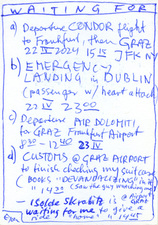 WAITING FOR
a) Departure CONDOR flight
to Frankfurt, then GRAZ
22 IV 2024 15 15 JFK NY
b) EMERGENCY
LANDING in DUBLIN
(passenger w/ heart attack)
22 IV 23 00
c) Departure AIR DOLOMITI
for GRAZ Frankfurt Airport
8 30 - 12 40 23 IV
d) CUSTOMS @ GRAZ AIRPORT
to finish checking my suitcase
(BOOKS
14 25
Isolde Skrabitz is @ Airport
GRAZ
waiting for me to give a
ride "home" 14 45